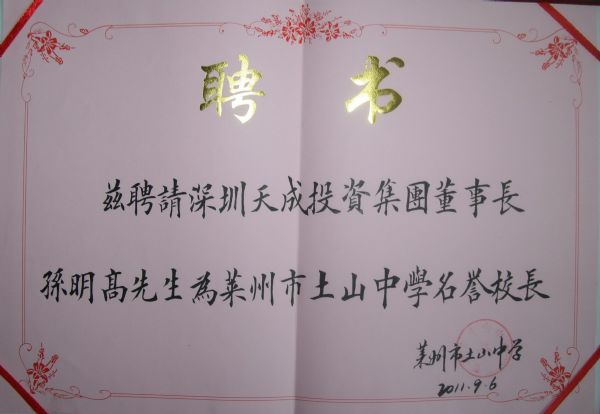 聘书
兹聘請深圳天成投資集團董事長
孫明高先生為莱州市土山中學名誉校長
莱州市土山中学
2011.9.6